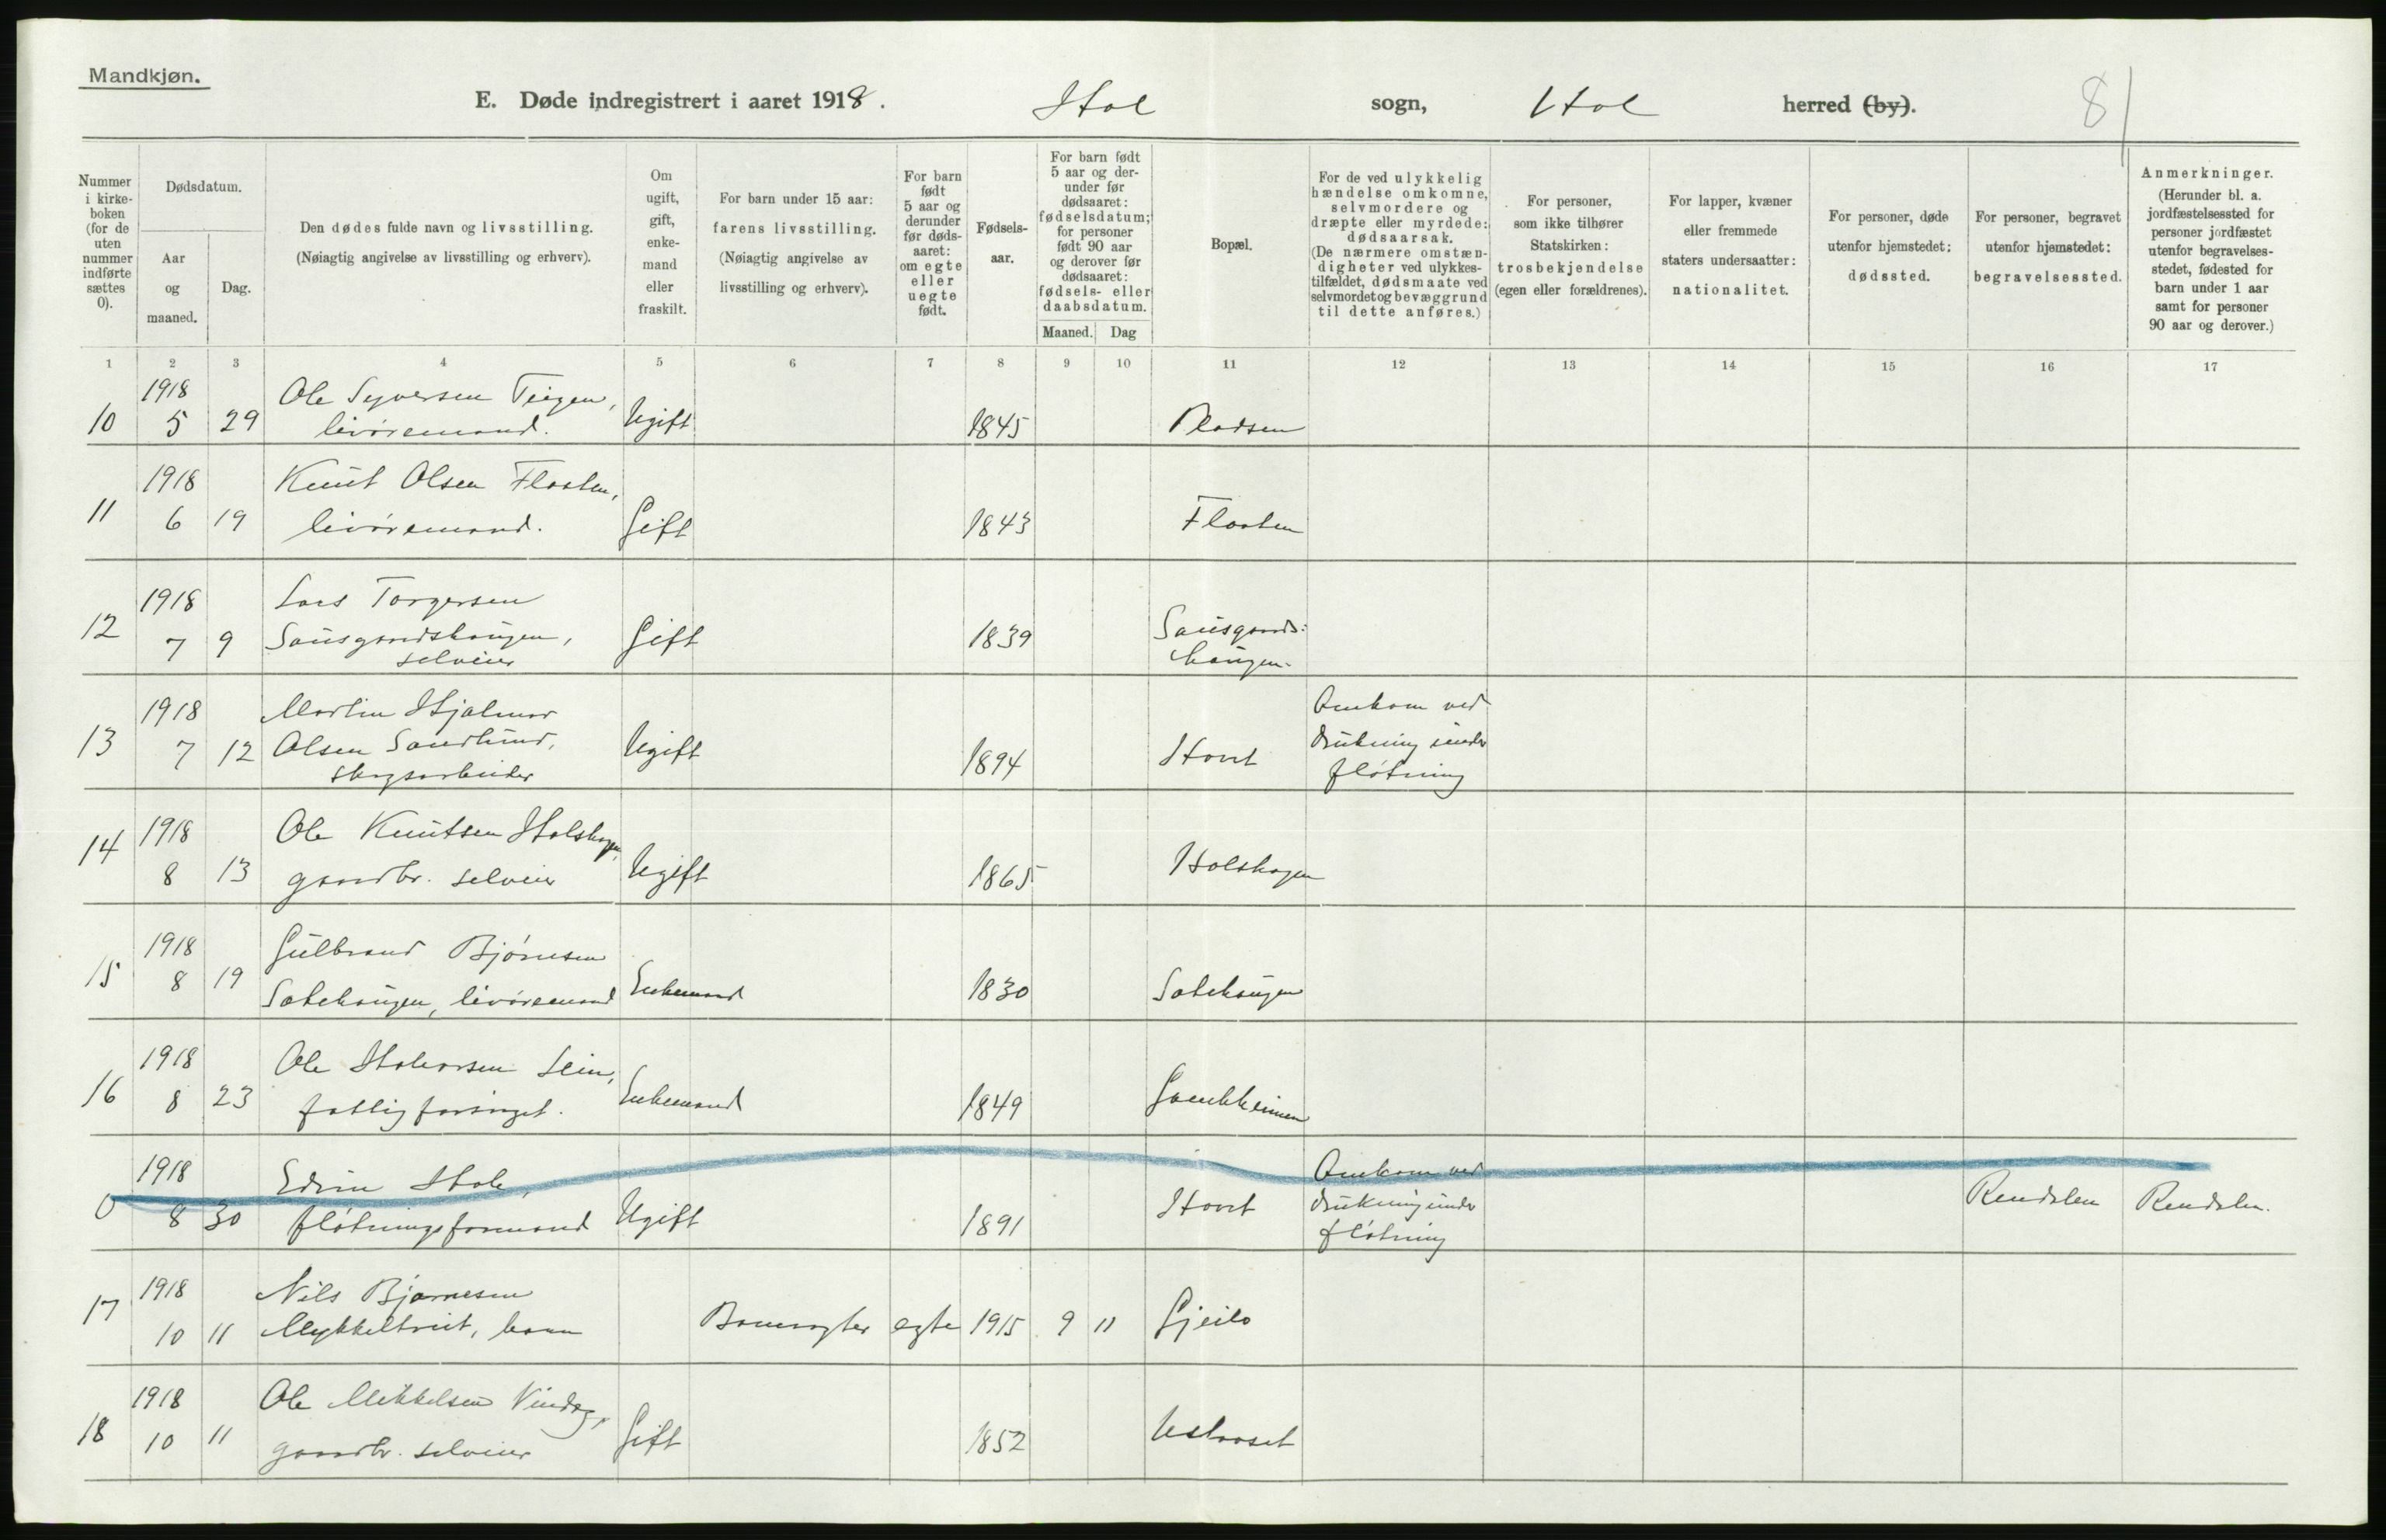 Mandkjøn.
E. Døde indregistrert i aaret 1918. Hol sogn, Hol herred (by). 8
Nummer i kirkeboken (for de uten nummer indførte sættes 0).
Dødsdatum.
Aar og maaned.
Dag.
Den dødes fulde navn og livsstilling.
(Nøiagtig angivelse av livsstilling og erhverv).
Om ugift, gift, enkemand eller fraskilt.
For barn under 15 aar: farens livsstilling.
(Nøiagtig angivelse av livsstilling og erhverv).
For barn født 5 aar og derunder før dødsaaret: om egte eller uegte født.
Fødselsaar.
For barn født 5 aar og derunder før dødsaaret: fødselsdatum; for personer født 90 aar og derover før dødsaaret: fødsels- eller daabsdatum.
Maaned. Dag
Bopæl.
For de ved ulykkelig hændelse omkomne, selvmordere og dræpte eller myrdede: dødsaarsak.
(De nærmere omstændigheter ved ulykkestilfældet, dødsmaate ved selvmordet og bevæggrund til dette anføres.)
For personer, som ikke tilhører Statskirken: trosbekjendelse (egen eller forældrenes).
For lapper, kvæner eller fremmede staters undersaatter: nationalitet.
For personer, døde utenfor hjemstedet: dødssted.
For personer, begravet utenfor hjemstedet: begravelsessted.
Anmerkninger.
(Herunder bl. a. jordfæstelsessted for personer jordfæstet utenfor begravelsesstedet, fødested for barn under 1 aar samt for personer 90 aar og derover.)
1 2 3 4 5 6 7 8 9 10 11 12 13 14 15 16 17
1918 Ole Syversen Teigen,
10 5 29 livøremand. Ugift 1845 Pladsen
1918 Knut Olsen Flaaten,
11 6 19 livøremand. Gift 1843 Flaaten
1918 Lars Torgersen
12 7 9 Sausgaardshaugen, Gift 1839 Sausgaards-
selveier haugen.
1918 Martin Hjalmar Omkom ved
13 7 12 Olsen Sandlund, Ugift 1894 Hovet drukning under
skogsarbeider fløtning
1918 Ole Knutsen Holshagen,
14 8 13 gaardbr. selveier Ugift 1865 Holshagen
1918 Gulbrand Bjørnsen
15 8 19 Satehaugen, livøremand Enkemand 1830 Satehaugen
1918 Ole Halvorsen
16 8 23 fattigforsørget. Enkemand 1849
1918 Omkom ved
0 8 30 fløtningsformand Ugift 1891 Hovet drukning under Rendalen Rendalen.
fløtning
1918 Nils Bjørnesen
17 10 11 Mykkeltveit, barn Banevogter egte 1915 9 11 Gjeilo
1918 Ole Mikkelsen
18 10 11 gaardbr. selveier Gift 1852 Ustaaset